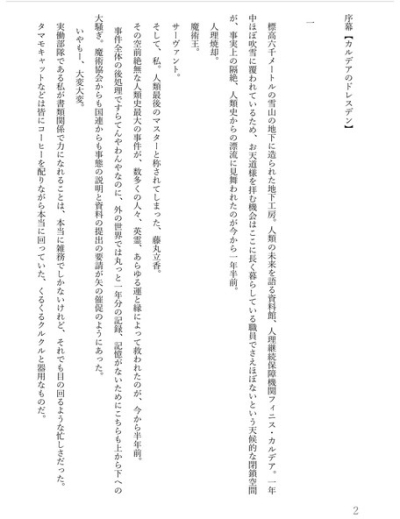 序幕【カルデアのドレスデン】
一
標高六千メートルの雪山の地下に造られた地下工房。人類の未来を語る資料館、人理継続保障機関フィニス・カルデア。一年
中ほぼ吹雪に覆われているため、お天道様を拝む機会はここに長く暮らしている職員でさえほぼないという天候的な閉鎖空間
が、事実上の隔絶、人類史からの漂流に見舞われたのが今から一年半前。
人理焼却。
魔術王。
サーヴァント。
そして、私。人類最後のマスターと称されてしまった、藤丸立香。
その空前絶無な人類史最大の事件が、数多くの人々、英霊、あらゆる運と縁によって救われたのが、今から半年前。
事件全体の後処理ですらてんやわんやなのに、外の世界では丸っと一年分の記録、記憶がないためにこちらも上から下への
大騒ぎ。魔術協会からも国連からも事態の説明と資料の提出の要請が矢の催促のようにあった。
いやもー、大変大変。
実働部隊である私が書類関係で力になれることは、本当に雑務でしかないけれど、それでも目の回るような忙しさだった。
タマモキャットなどは皆にコーヒーを配りながら本当に回っていた、くるくるクルクルと器用なものだ。
2